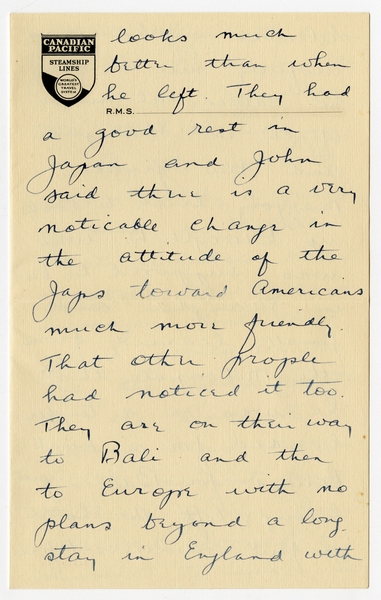 CANADIAN
PACIFIC
STEAMSHIP
LINES
WORLD'S
GREATEST
TRAVEL
SYSTEM
R.M.S.
looks much
better than when
he left. They had
a good rest in
Japan and John
said there is a very
noticable change in
the attitude of the
Japs toward Americans
much more friendly.
That other people
had noticed it too.
They are on their way
to Bali and then
to Europe with no
plans beyond a long
stay in England with